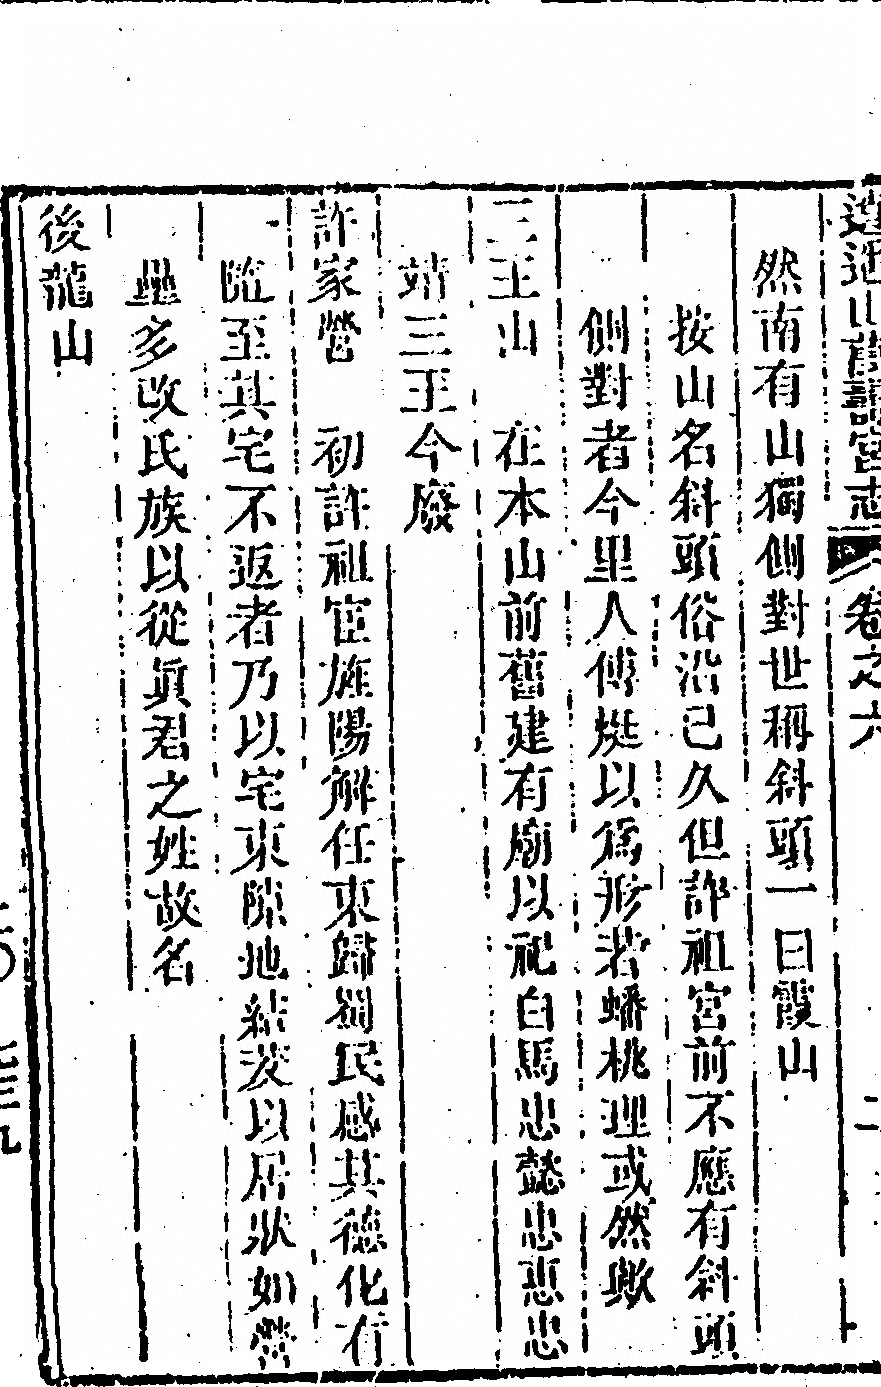 逍遙山萬壽宮志 卷之六 二
然南有山獨側對世稱斜頭一曰霞山
按山名斜頭俗沿已久但許祖宮前不應有斜頭
側對者今里人傅梃以為形若蟠桃理或然歟
三王山 在本山前舊建有廟以祀白馬忠懿忠惠忠
靖三王今廢
許家營 初許祖宦旌陽解任東歸蜀民感其德化有
隨至其宅不返者乃以宅東隙地結茭以居狀如營
壘多改氏族以從眞君之姓故名
後龍山
二〇 七三九